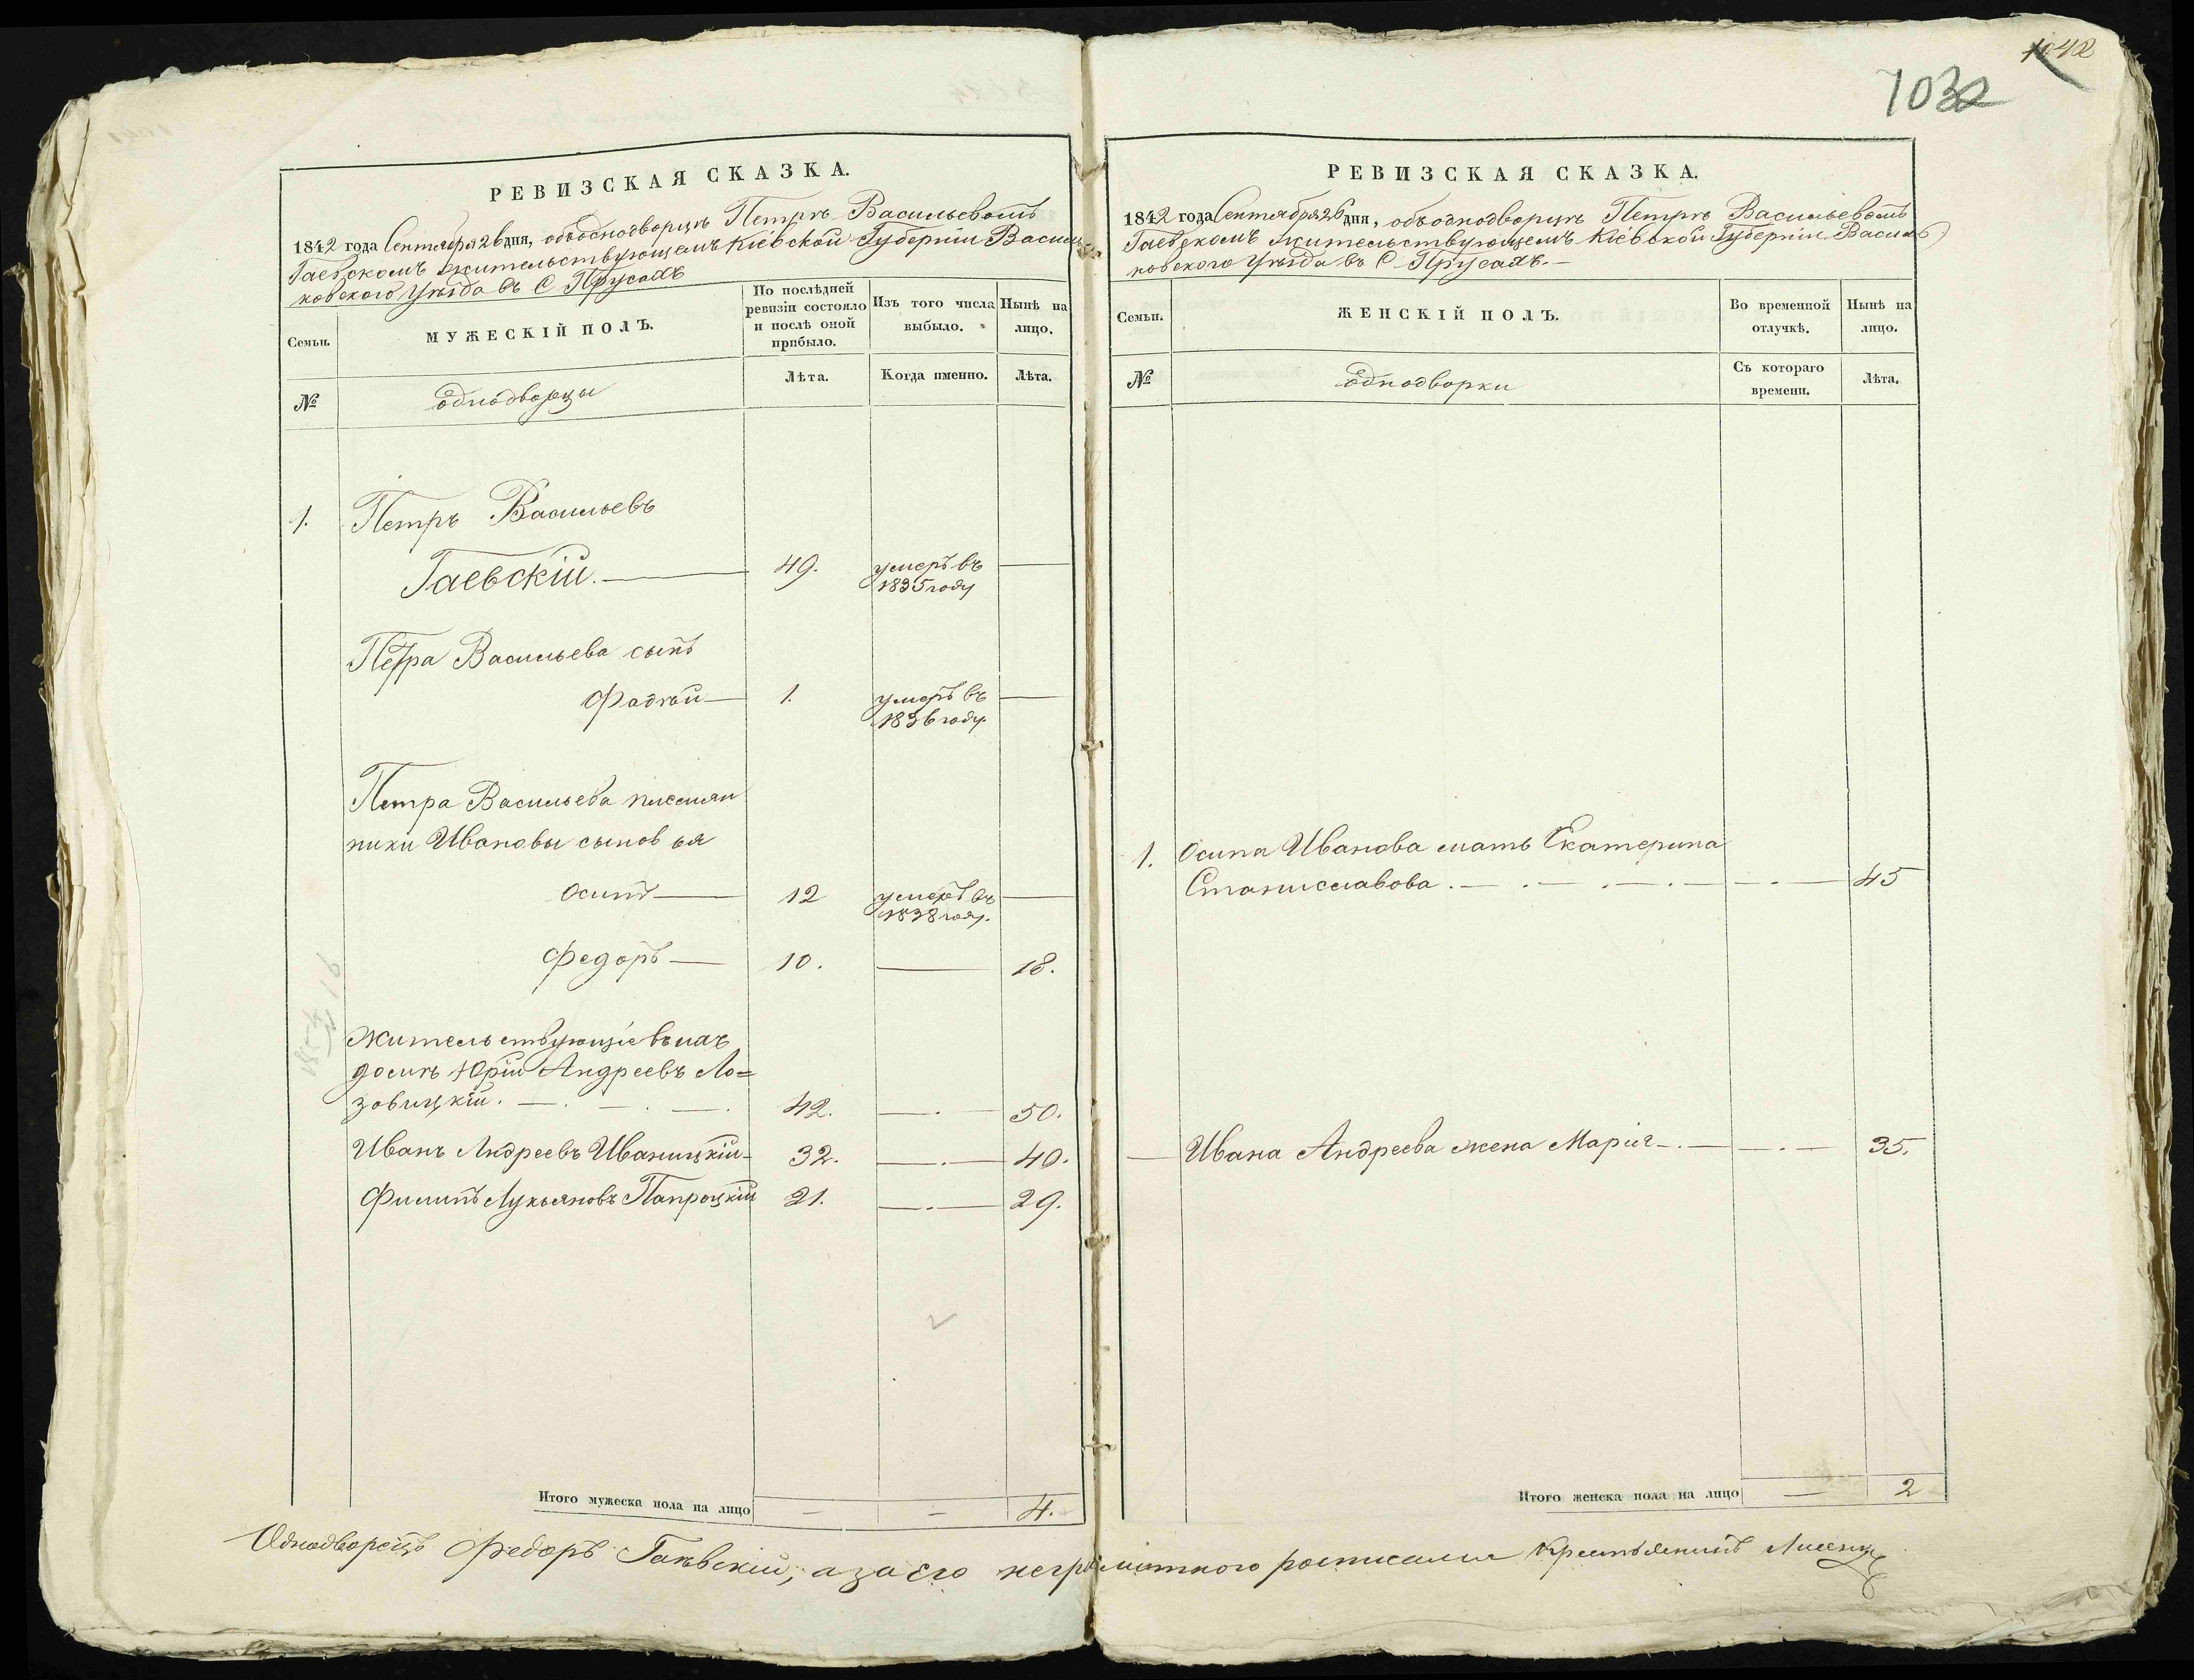 1042
1032
РЕВИЗСКАЯ СКАЗКА.
1842 года Сентября 26 дня, объ однодворцѣ Петрѣ Васильевомъ
Гаевскомъ жительствующемъ Кіевской Губерніи Василь
ковского Уѣзда въ С Прусахъ
Семьи.
МУЖЕСКІЙ ПОЛЪ.
По послѣдней
ревизіи состояло
и послѣ оной
прибыло.
Изъ того числа
выбыло.
Нынѣ на
лицо.
№
однодворцы
Лѣта.
Когда именно.
Лѣта.
1. Петръ Васильевъ
Гаевскій. 49. умеръ въ
1835 году
Петра Васильева сынъ
Фадѣй 1. умеръ въ
1836 году.
Петра Васильева племян
ники Ивановы сыновья
Осипъ 12 умеръ въ
1838 году.
Федоръ 10. — 18.
Жительствующіе въ ихъ
домѣ Юрій Андреевъ Ло=
зовицкій. 42. — 50.
Иванъ Андреевъ Иваницкій 32. — 40.
Филипъ Лукьяновъ Папроцкій 21. — 29.
Итого мужеска пола на лицо — — 4.
РЕВИЗСКАЯ СКАЗКА.
1842 года Сентября 26 дня, объ однодворцѣ Петрѣ Васильевомъ
Гаевскомъ жительствующемъ Кіевской Губерніи Василь
ковского Уѣзда въ С Прусахъ.—
Семьи.
ЖЕНСКІЙ ПОЛЪ.
Во временной
отлучкѣ.
Нынѣ на
лицо.
№
однодворки
Съ котораго
времени.
Лѣта.
1. Осипа Иванова мать Екатерина
Станиславова. — 45
— Ивана Андреева жена Марія — 35.
Итого женска пола на лицо — 2
Однодворецъ Федоръ Гаевскій, а за его неграмотного росписался Крестьянинъ